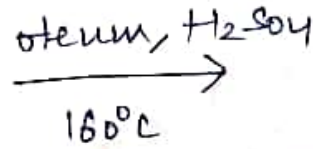 oteum, H2SO4
160°C